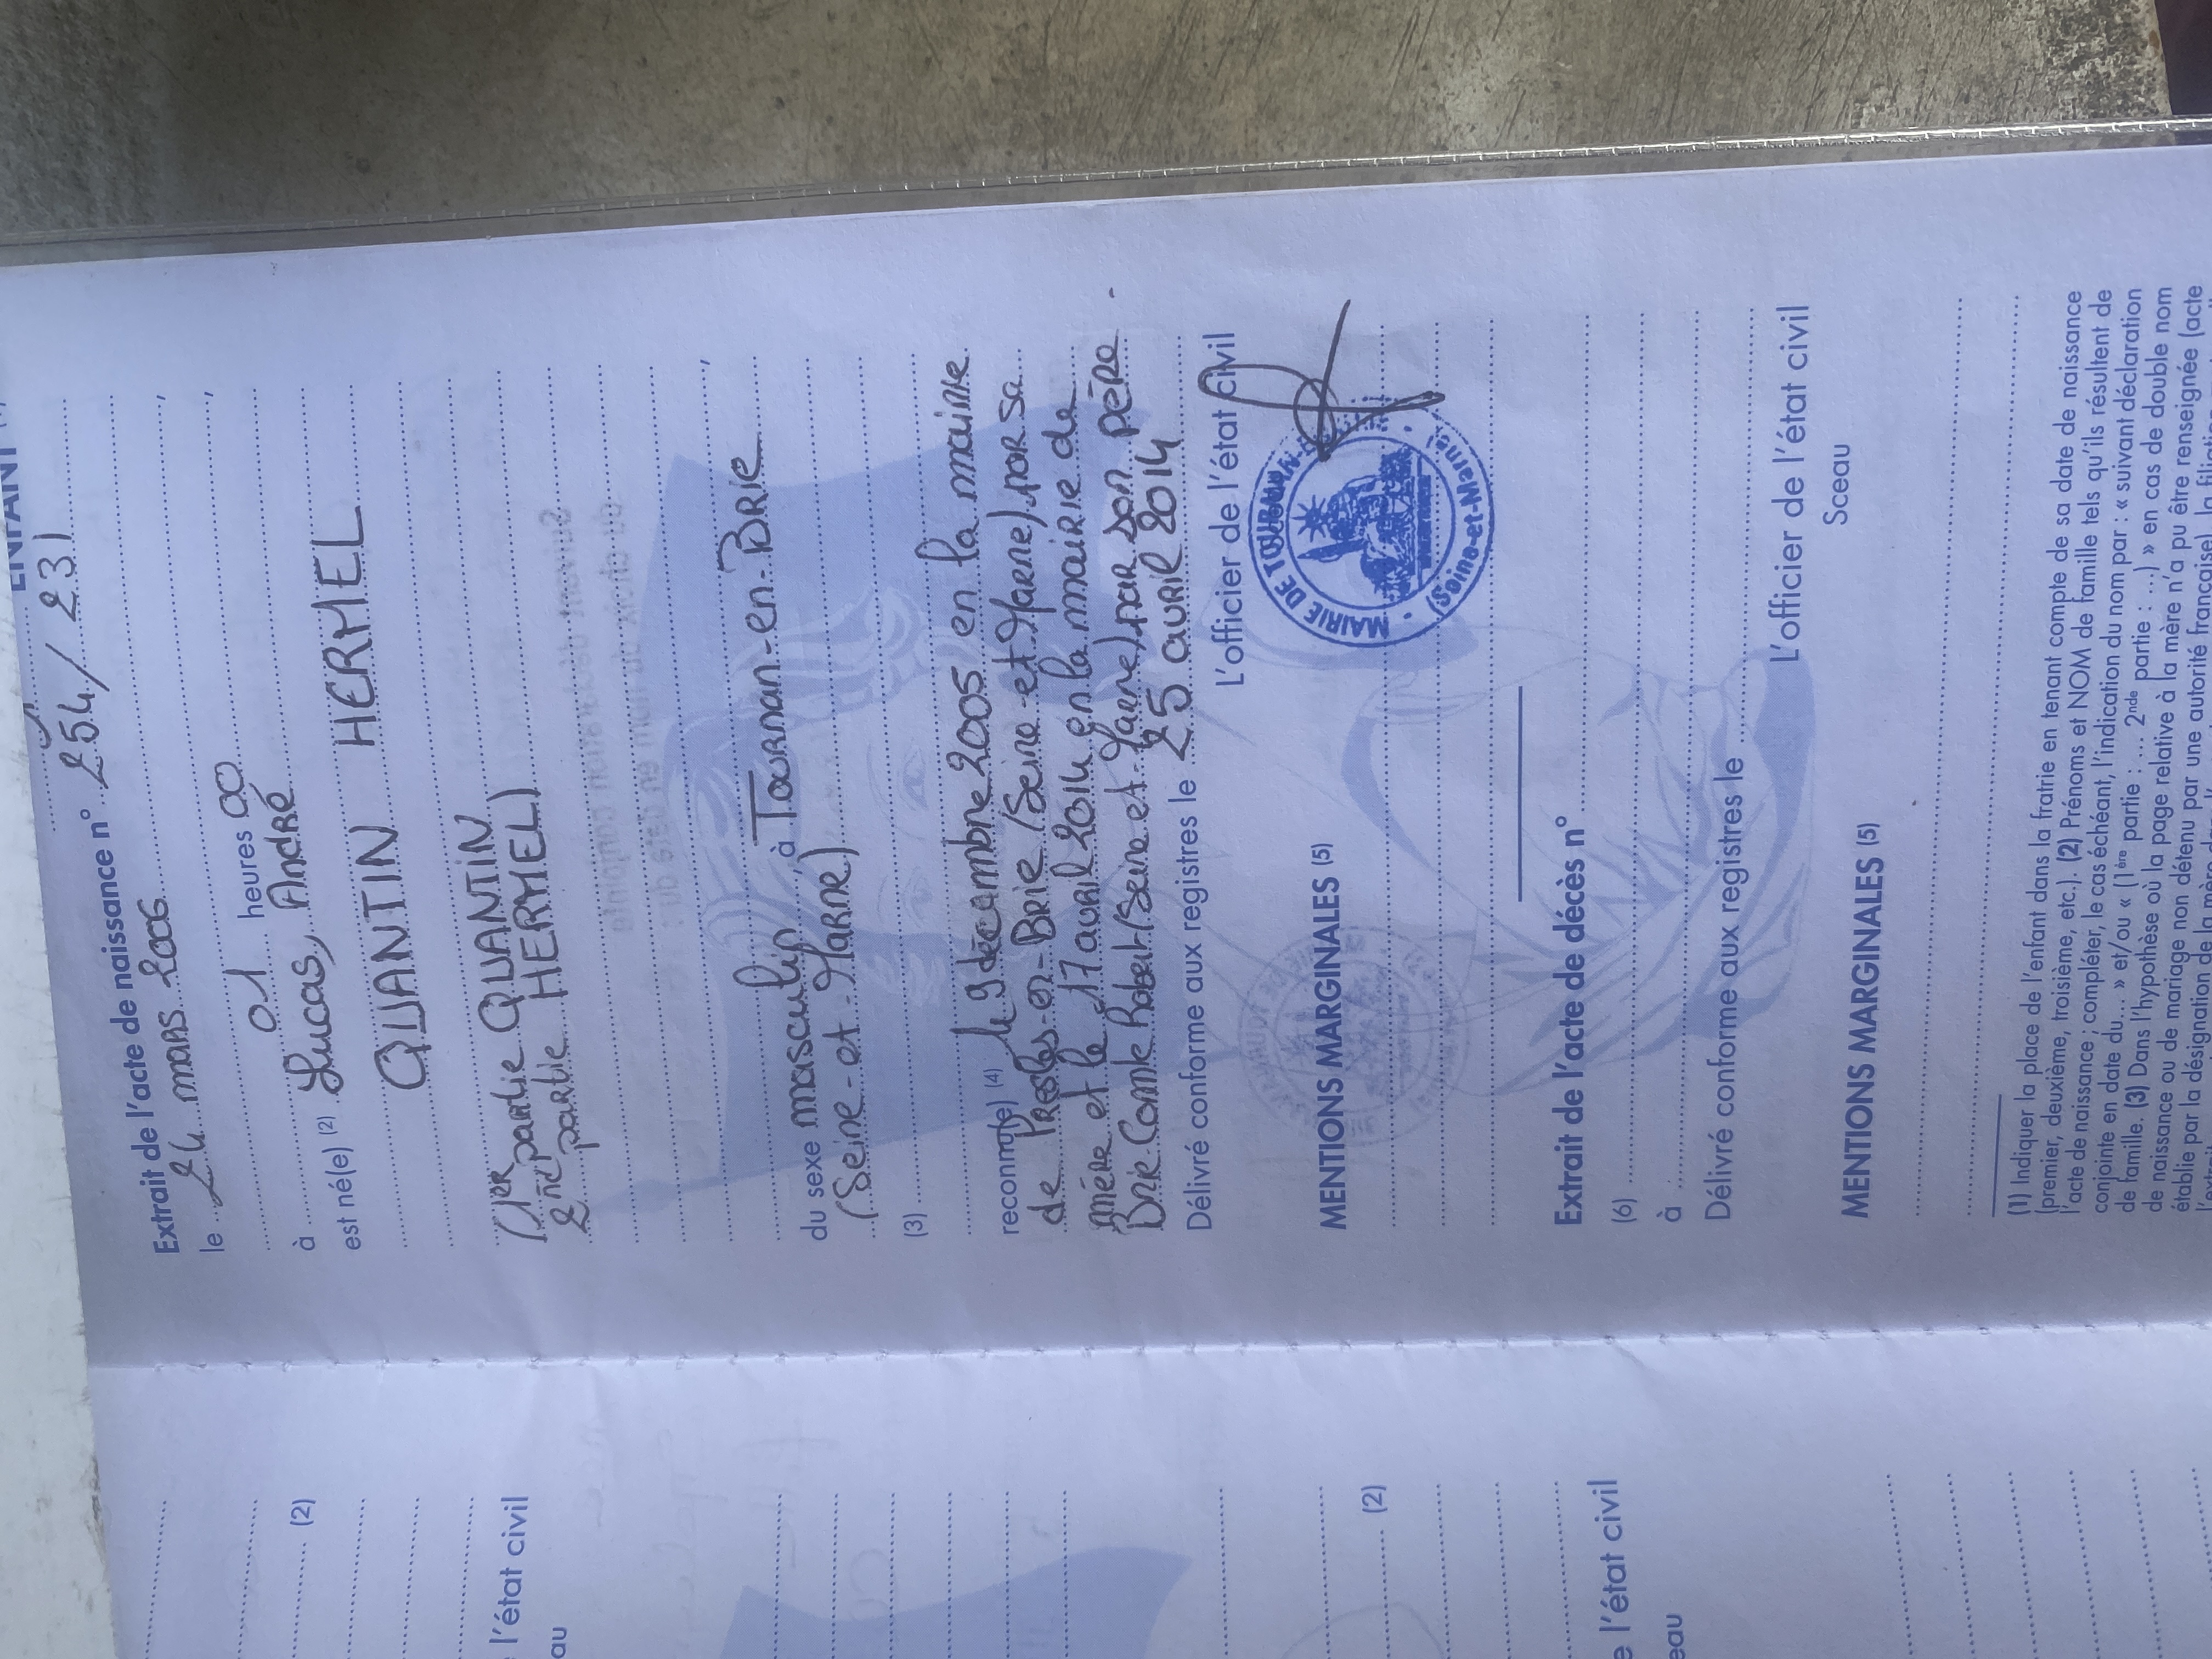 ENFANT
Extrait de l'acte de naissance n° 254/231
le 24 mars 2006
01 heures 00
à
est né(e) (2) Lucas, André
QUANTIN HERMEL
(1er partie QUANTIN
2nde partie HERMEL)
du sexe masculin, à Tournan-en-Brie
(Seine-et-Marne)
(3)
reconnu(e) (4) le 9 décembre 2005 en la mairie
de Presles-en-Brie (Seine-et-Marne) par sa
mère et le 17 avril 2014 en la mairie de
Brie-Comte Robert (Seine et-Marne) par son père.
Délivré conforme aux registres le 25 avril 2014
L'officier de l'état civil
MAIRIE DE TOURNAN-EN-BRIE
(Seine-et-Marne)
MENTIONS MARGINALES (5)
Extrait de l'acte de décès n°
(6)
à
Délivré conforme aux registres le
L'officier de l'état civil
Sceau
MENTIONS MARGINALES (5)
(1) Indiquer la place de l'enfant dans la fratrie en tenant compte de sa date de naissance
(premier, deuxième, troisième, etc.). (2) Prénoms et NOM de famille tels qu'ils résultent de
l'acte de naissance ; compléter, le cas échéant, l'indication du nom par : « suivant déclaration
conjointe en date du... » et/ou « (1ère partie : ... 2nde partie : ...) » en cas de double nom
de famille. (3) Dans l'hypothèse où la page relative à la mère n'a pu être renseignée (acte
de naissance ou de mariage non détenu par une autorité française), la
établie par la désignation de la mère
(2)
l'état civil
eau
(2)
l'état civil
eau